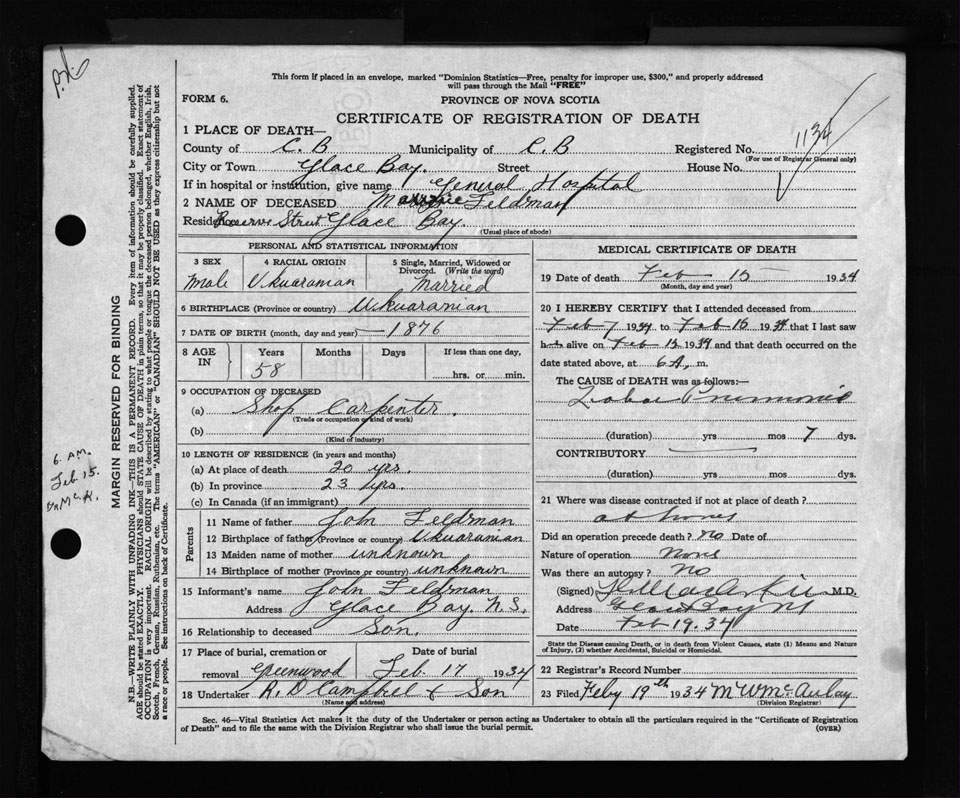 P.N.
This form if placed in an envelope, marked "Dominion Statistics—Free, penalty for improper use, $300," and properly addressed
will pass through the Mail "FREE"
FORM 6.
PROVINCE OF NOVA SCOTIA
CERTIFICATE OF REGISTRATION OF DEATH
1 PLACE OF DEATH—
County of C. B Municipality of C. B Registered No. 1134
(For use of Registrar General only)
City or Town Glace Bay. Street House No.
If in hospital or institution, give name General Hospital
2 NAME OF DECEASED Feldman
Residence Reserve Street Glace Bay.
(Usual place of abode)
PERSONAL AND STATISTICAL INFORMATION
3 SEX 4 RACIAL ORIGIN 5 Single, Married, Widowed or
Divorced. (Write the word)
Male Ukuaranian Married
6 BIRTHPLACE (Province or country) Ukuaranian
7 DATE OF BIRTH (month, day and year) — 1876
8 AGE IN Years Months Days If less than one day,
58 hrs. or min.
9 OCCUPATION OF DECEASED
(a) Shop Carpenter.
(Trade or occupation or kind of work)
(b)
(Kind of industry)
10 LENGTH OF RESIDENCE (in years and months)
(a) At place of death 20 yrs.
(b) In province 23 yrs.
(c) In Canada (if an immigrant)
Parents
11 Name of father John Feldman
12 Birthplace of father (Province or country) Ukuaranian
13 Maiden name of mother unknown
14 Birthplace of mother (Province or country) unknown
15 Informant's name John Feldman
Address Glace Bay. N.S.
16 Relationship to deceased Son.
17 Place of burial, cremation or Date of burial
removal Greenwood Feb. 17 1934
18 Undertaker R. D Campbel & Son
(Name and address)
MEDICAL CERTIFICATE OF DEATH
19 Date of death Feb 15 1934
(Month, day and year)
20 I HEREBY CERTIFY that I attended deceased from
Feb 7 1934 to Feb 15 1934 that I last saw
him alive on Feb 15 1934 and that death occurred on the
date stated above, at 6 A. m.
The CAUSE OF DEATH was as follows:—
Lobar Pneumonia
(duration) yrs mos 7 dys.
CONTRIBUTORY
(duration) yrs mos dys.
21 Where was disease contracted if not at place of death?
at home
Did an operation precede death? no Date of
Nature of operation None
Was there an autopsy? No
(Signed) M.D.
Address Glace Bay NS
Date Feb 19. 34
State the Disease causing Death, or in death from Violent Causes, state (1) Means and Nature
of Injury, (2) whether Accidental, Suicidal or Homicidal.
22 Registrar's Record Number
23 Filed Feby 19th 1934 M W McAulay
(Division Registrar)
Sec. 46—Vital Statistics Act makes it the duty of the Undertaker or person acting as Undertaker to obtain all the particulars required in the "Certificate of Registration
of Death" and to file the same with the Division Registrar who shall issue the burial permit.
(OVER)
MARGIN RESERVED FOR BINDING
N.B.—WRITE PLAINLY WITH UNFADING INK—THIS IS A PERMANENT RECORD. Every item of information should be carefully supplied.
AGE should be stated EXACTLY. PHYSICIANS should STATE CAUSE OF DEATH in plain terms, so that it may be properly classified. Exact statement of
OCCUPATION is very important. RACIAL ORIGIN will be described by stating to what people or tongue the deceased person belonged, whether English, Irish,
Scotch, French, German, Russian, Ruthenian, etc. The terms "AMERICAN" or "CANADIAN" SHOULD NOT BE USED as they express citizenship but not
a race or people. See instructions on back of Certificate.
6 AM.
Feb. 15.
Dr Mc K.